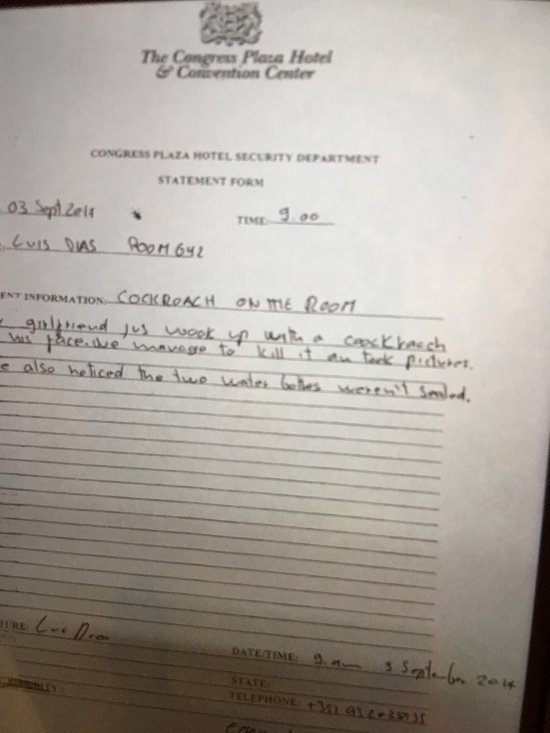 The Congress Plaza Hotel
& Convention Center
CONGRESS PLAZA HOTEL SECURITY DEPARTMENT
STATEMENT FORM
03 Sept 2018
TIME: 9.00
LUIS DIAS ROOM 642
ENT INFORMATION: COCKROACH ON THE ROOM
girlfriend jus woock up with a coockroach
his face. We manage to kill it an took pictures.
e also noticed the two water bottles weren't sealed.
TURE:
DATE/TIME: 9. am 3 September
STATE:
TELEPHONE: +351